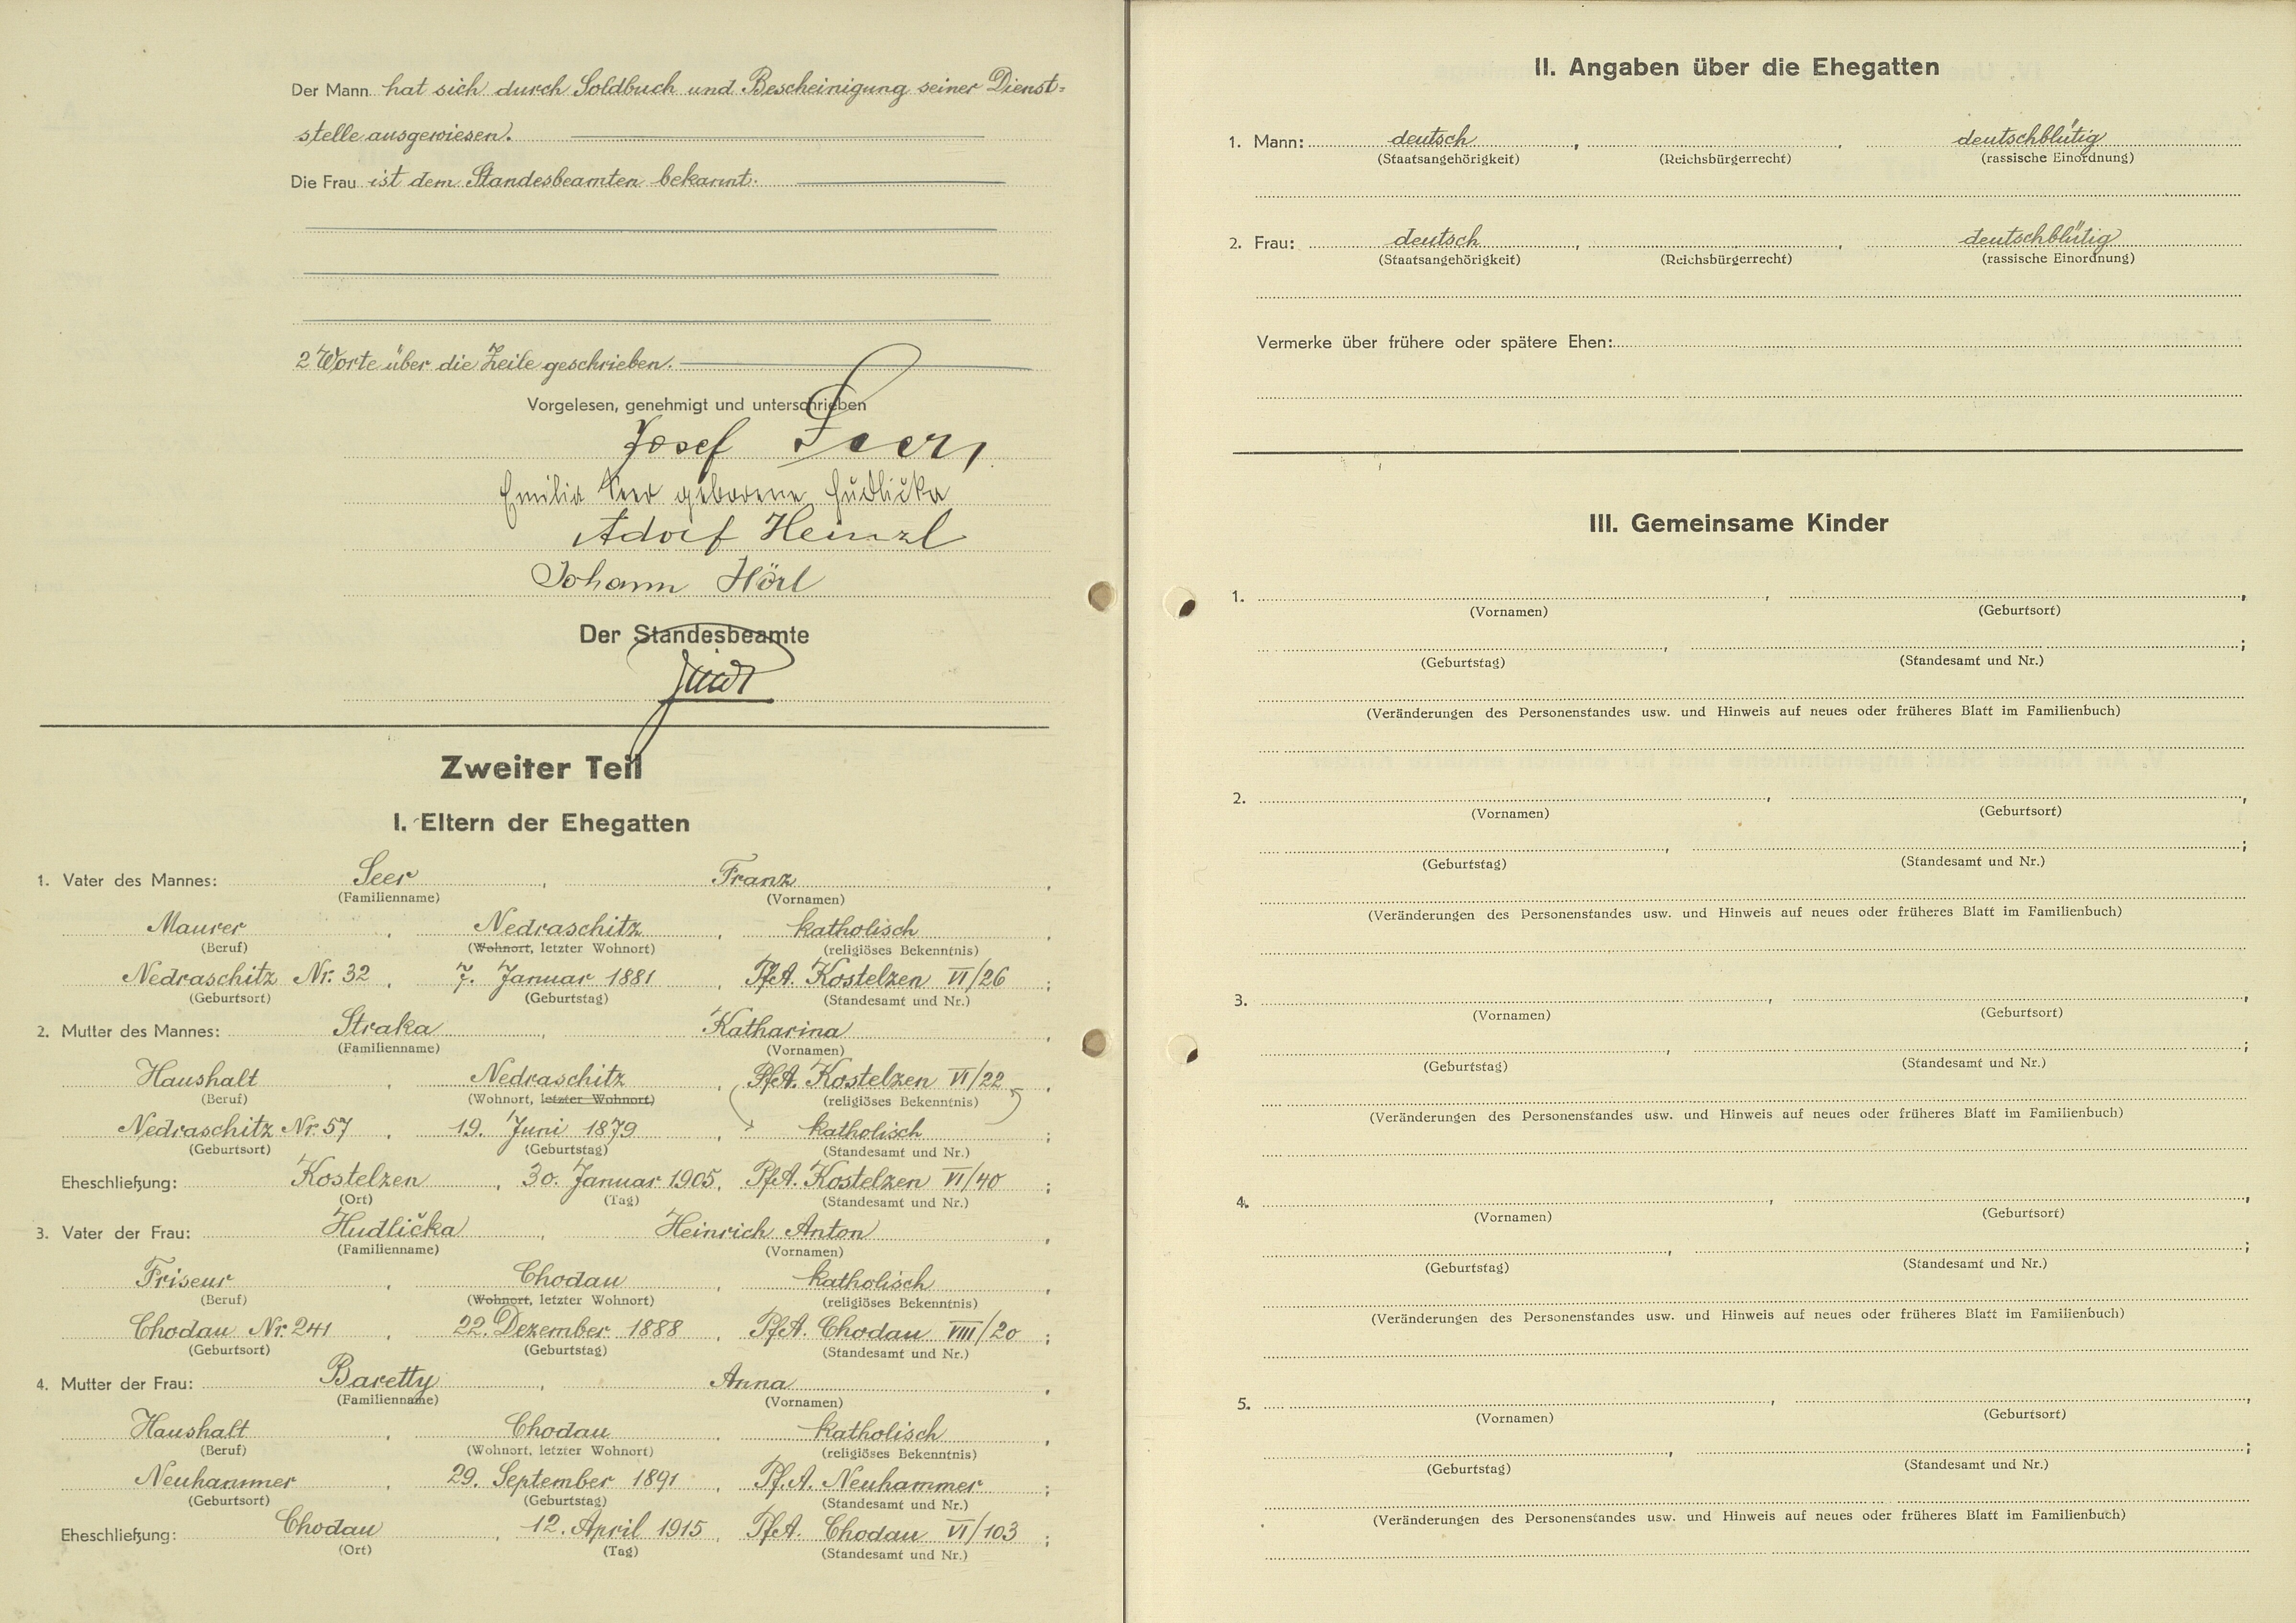 Der Mann hat sich durch Soldbuch und Bescheinigung seiner Dienst=
stelle ausgewiesen.
Die Frau ist dem Standesbeamten bekannt.
2 Worte über die Zeile geschrieben.
Vorgelesen, genehmigt und unterschrieben
Josef Seer,
Emilia Seer geborene Hudlička
Adolf Heinzl
Johann Hörl
Der Standesbeamte
Zweiter Teil
I. Eltern der Ehegatten
1. Vater des Mannes: Seer, Franz,
(Familienname) (Vornamen)
Maurer, Nedraschitz, katholisch,
(Beruf) (Wohnort, letzter Wohnort) (religiöses Bekenntnis)
Nedraschitz Nr. 32, 7. Januar 1881, PfA. Kostelzen VI/26;
(Geburtsort) (Geburtstag) (Standesamt und Nr.)
2. Mutter des Mannes: Straka, Katharina,
(Familienname) (Vornamen)
Haushalt, Nedraschitz, PfA. Kostelzen VI/22,
(Beruf) (Wohnort, letzter Wohnort) (religiöses Bekenntnis)
Nedraschitz Nr. 57, 19. Juni 1879, katholisch;
(Geburtsort) (Geburtstag) (Standesamt und Nr.)
Eheschließung: Kostelzen, 30. Januar 1905, PfA. Kostelzen VI/40;
(Ort) (Tag) (Standesamt und Nr.)
3. Vater der Frau: Hudlička, Heinrich Anton,
(Familienname) (Vornamen)
Friseur, Chodau, katholisch,
(Beruf) (Wohnort, letzter Wohnort) (religiöses Bekenntnis)
Chodau Nr. 241, 22. Dezember 1888, PfA. Chodau VIII/20;
(Geburtsort) (Geburtstag) (Standesamt und Nr.)
4. Mutter der Frau: Baretty, Anna,
(Familienname) (Vornamen)
Haushalt, Chodau, katholisch,
(Beruf) (Wohnort, letzter Wohnort) (religiöses Bekenntnis)
Neuhammer, 29. September 1891, Pf.A. Neuhammer;
(Geburtsort) (Geburtstag) (Standesamt und Nr.)
Eheschließung: Chodau, 12. April 1915, PfA. Chodau VI/103;
(Ort) (Tag) (Standesamt und Nr.)
II. Angaben über die Ehegatten
1. Mann: deutsch, , deutschblütig
(Staatsangehörigkeit) (Reichsbürgerrecht) (rassische Einordnung)
2. Frau: deutsch, , deutschblütig
(Staatsangehörigkeit) (Reichsbürgerrecht) (rassische Einordnung)
Vermerke über frühere oder spätere Ehen:
III. Gemeinsame Kinder
1. , ,
(Vornamen) (Geburtsort)
, ;
(Geburtstag) (Standesamt und Nr.)
(Veränderungen des Personenstandes usw. und Hinweis auf neues oder früheres Blatt im Familienbuch)
2. , ,
(Vornamen) (Geburtsort)
, ;
(Geburtstag) (Standesamt und Nr.)
(Veränderungen des Personenstandes usw. und Hinweis auf neues oder früheres Blatt im Familienbuch)
3. , ,
(Vornamen) (Geburtsort)
, ;
(Geburtstag) (Standesamt und Nr.)
(Veränderungen des Personenstandes usw. und Hinweis auf neues oder früheres Blatt im Familienbuch)
4. , ,
(Vornamen) (Geburtsort)
, ;
(Geburtstag) (Standesamt und Nr.)
(Veränderungen des Personenstandes usw. und Hinweis auf neues oder früheres Blatt im Familienbuch)
5. , ,
(Vornamen) (Geburtsort)
, ;
(Geburtstag) (Standesamt und Nr.)
(Veränderungen des Personenstandes usw. und Hinweis auf neues oder früheres Blatt im Familienbuch)